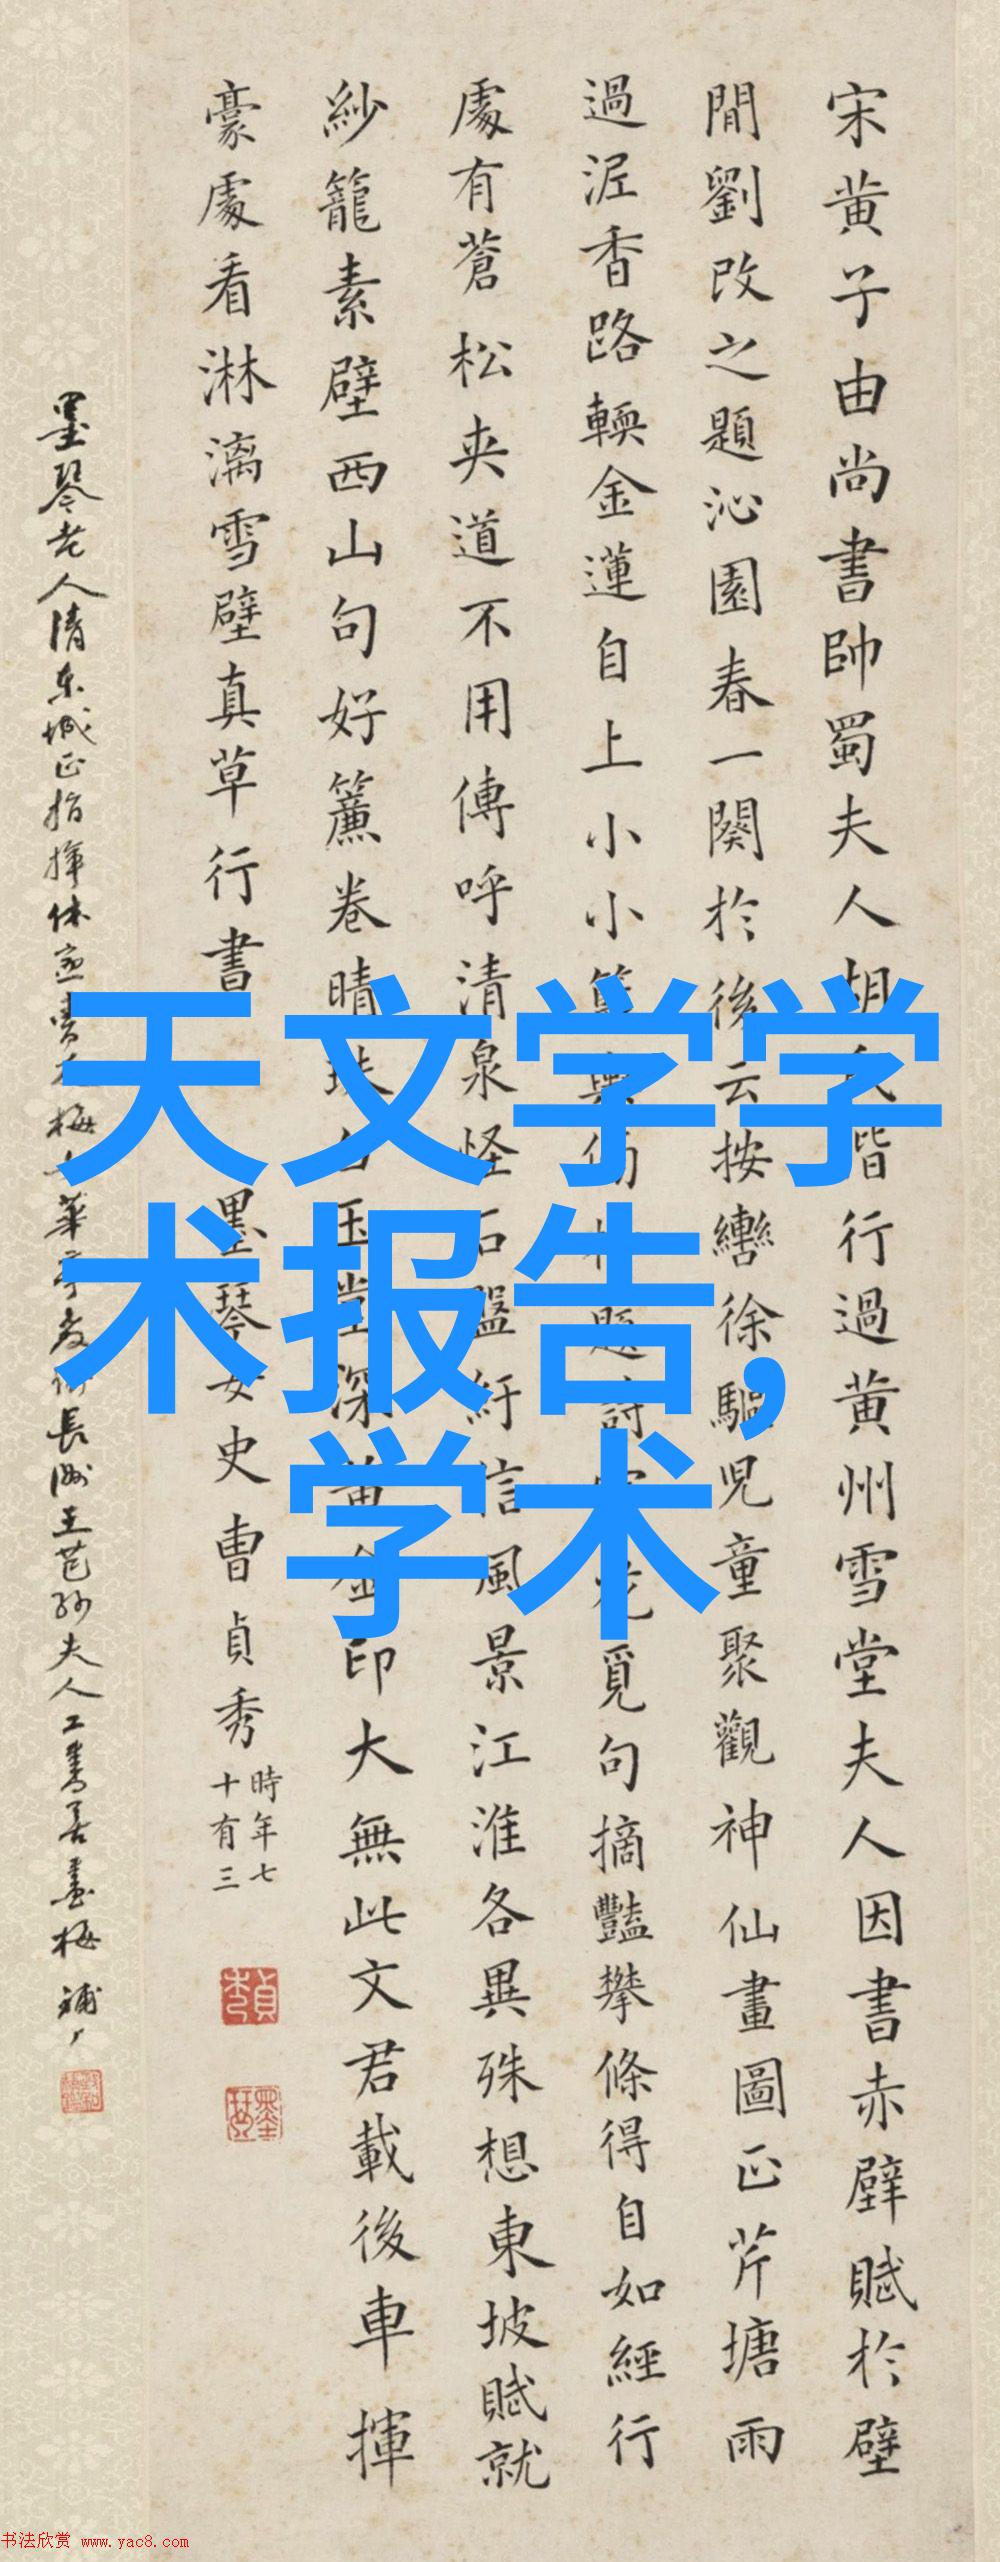 宋黄子由尚書帥蜀夫人胡氏偕行過黄州雪堂夫人因書赤壁賦於壁
間劉改之題沁園春一闋於後云按轡徐驅兒童聚觀神仙畫圖正芹塘雨
過泥香路輭金蓮自上小小籃輿傍柳題詩穿花覓句摘豔攀條得自如經行
處有蒼松夾道不用傳呼清泉怪石盤紆信風景江淮各異殊想東坡賦就
紗籠素壁西山句好簾卷晴珠白玉堂深黄金印大無此文君載後車揮
豪處看淋漓雪壁真草行書
墨琴女史曹貞秀
時年七
十有三
墨琴老人清東城正指揮休
長洲王芑孫夫人工書善畫梅
天文学学
术报告,
学术
书法欣赏 www.yac8.com